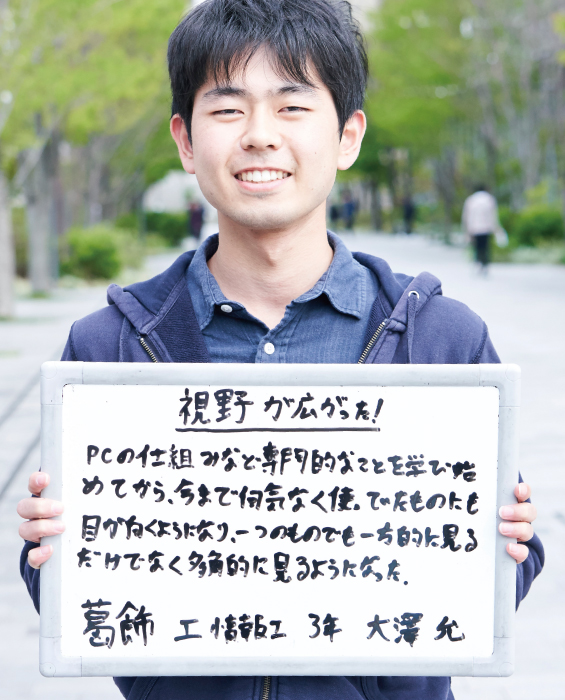 視野が広がった！
PCの仕組みなど専門的なことを学び始
めてから、今まで何気なく使っていたものにも
目が向くようになり、一つのものでも一方的に見る
だけでなく多角的に見るようになった。
葛飾 工 情報工 3年 大澤 允